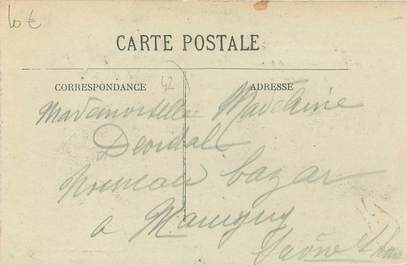 10 €
CARTE POSTALE
CORRESPONDANCE 42 ADRESSE
Mademoiselle Madeleine
Nouveau bazar
a Marigny
Saône